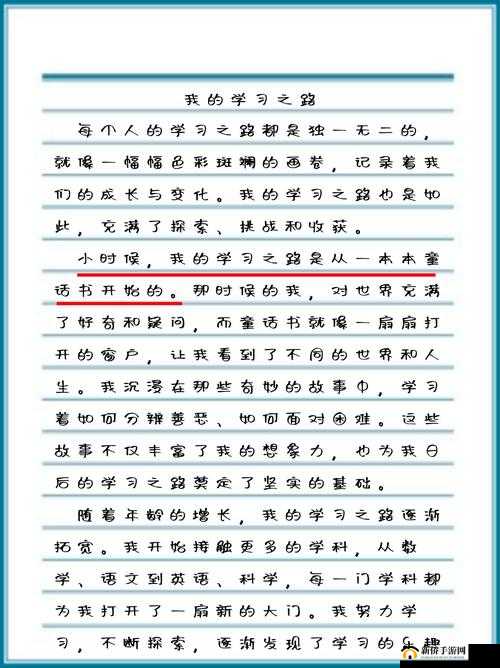 我的学习之路
每个人的学习之路都是独一无二的，
就像一幅幅色彩斑斓的画卷，记录着我
们的成长与变化。我的学习之路也是如
此，充满了探索、挑战和收获。
小时候，我的学习之路是从一本本童
话书开始的。那时候的我，对世界充满
了好奇和疑问，而童话书就像一扇扇打
开的窗户，让我看到了不同的世界和人
生。我沉浸在那些奇妙的故事中，学习
着如何分辨善恶、如何面对困难。这些
故事不仅丰富了我的想象力，也为我日
后的学习之路奠定了坚实的基础。
随着年龄的增长，我的学习之路逐渐
拓宽。我开始接触更多的学科，从数
学、语文到英语、科学，每一门学科都
为我打开了一扇新的大门。我努力学
习，不断探索，逐渐发现了学习的乐趣
新侨手游网